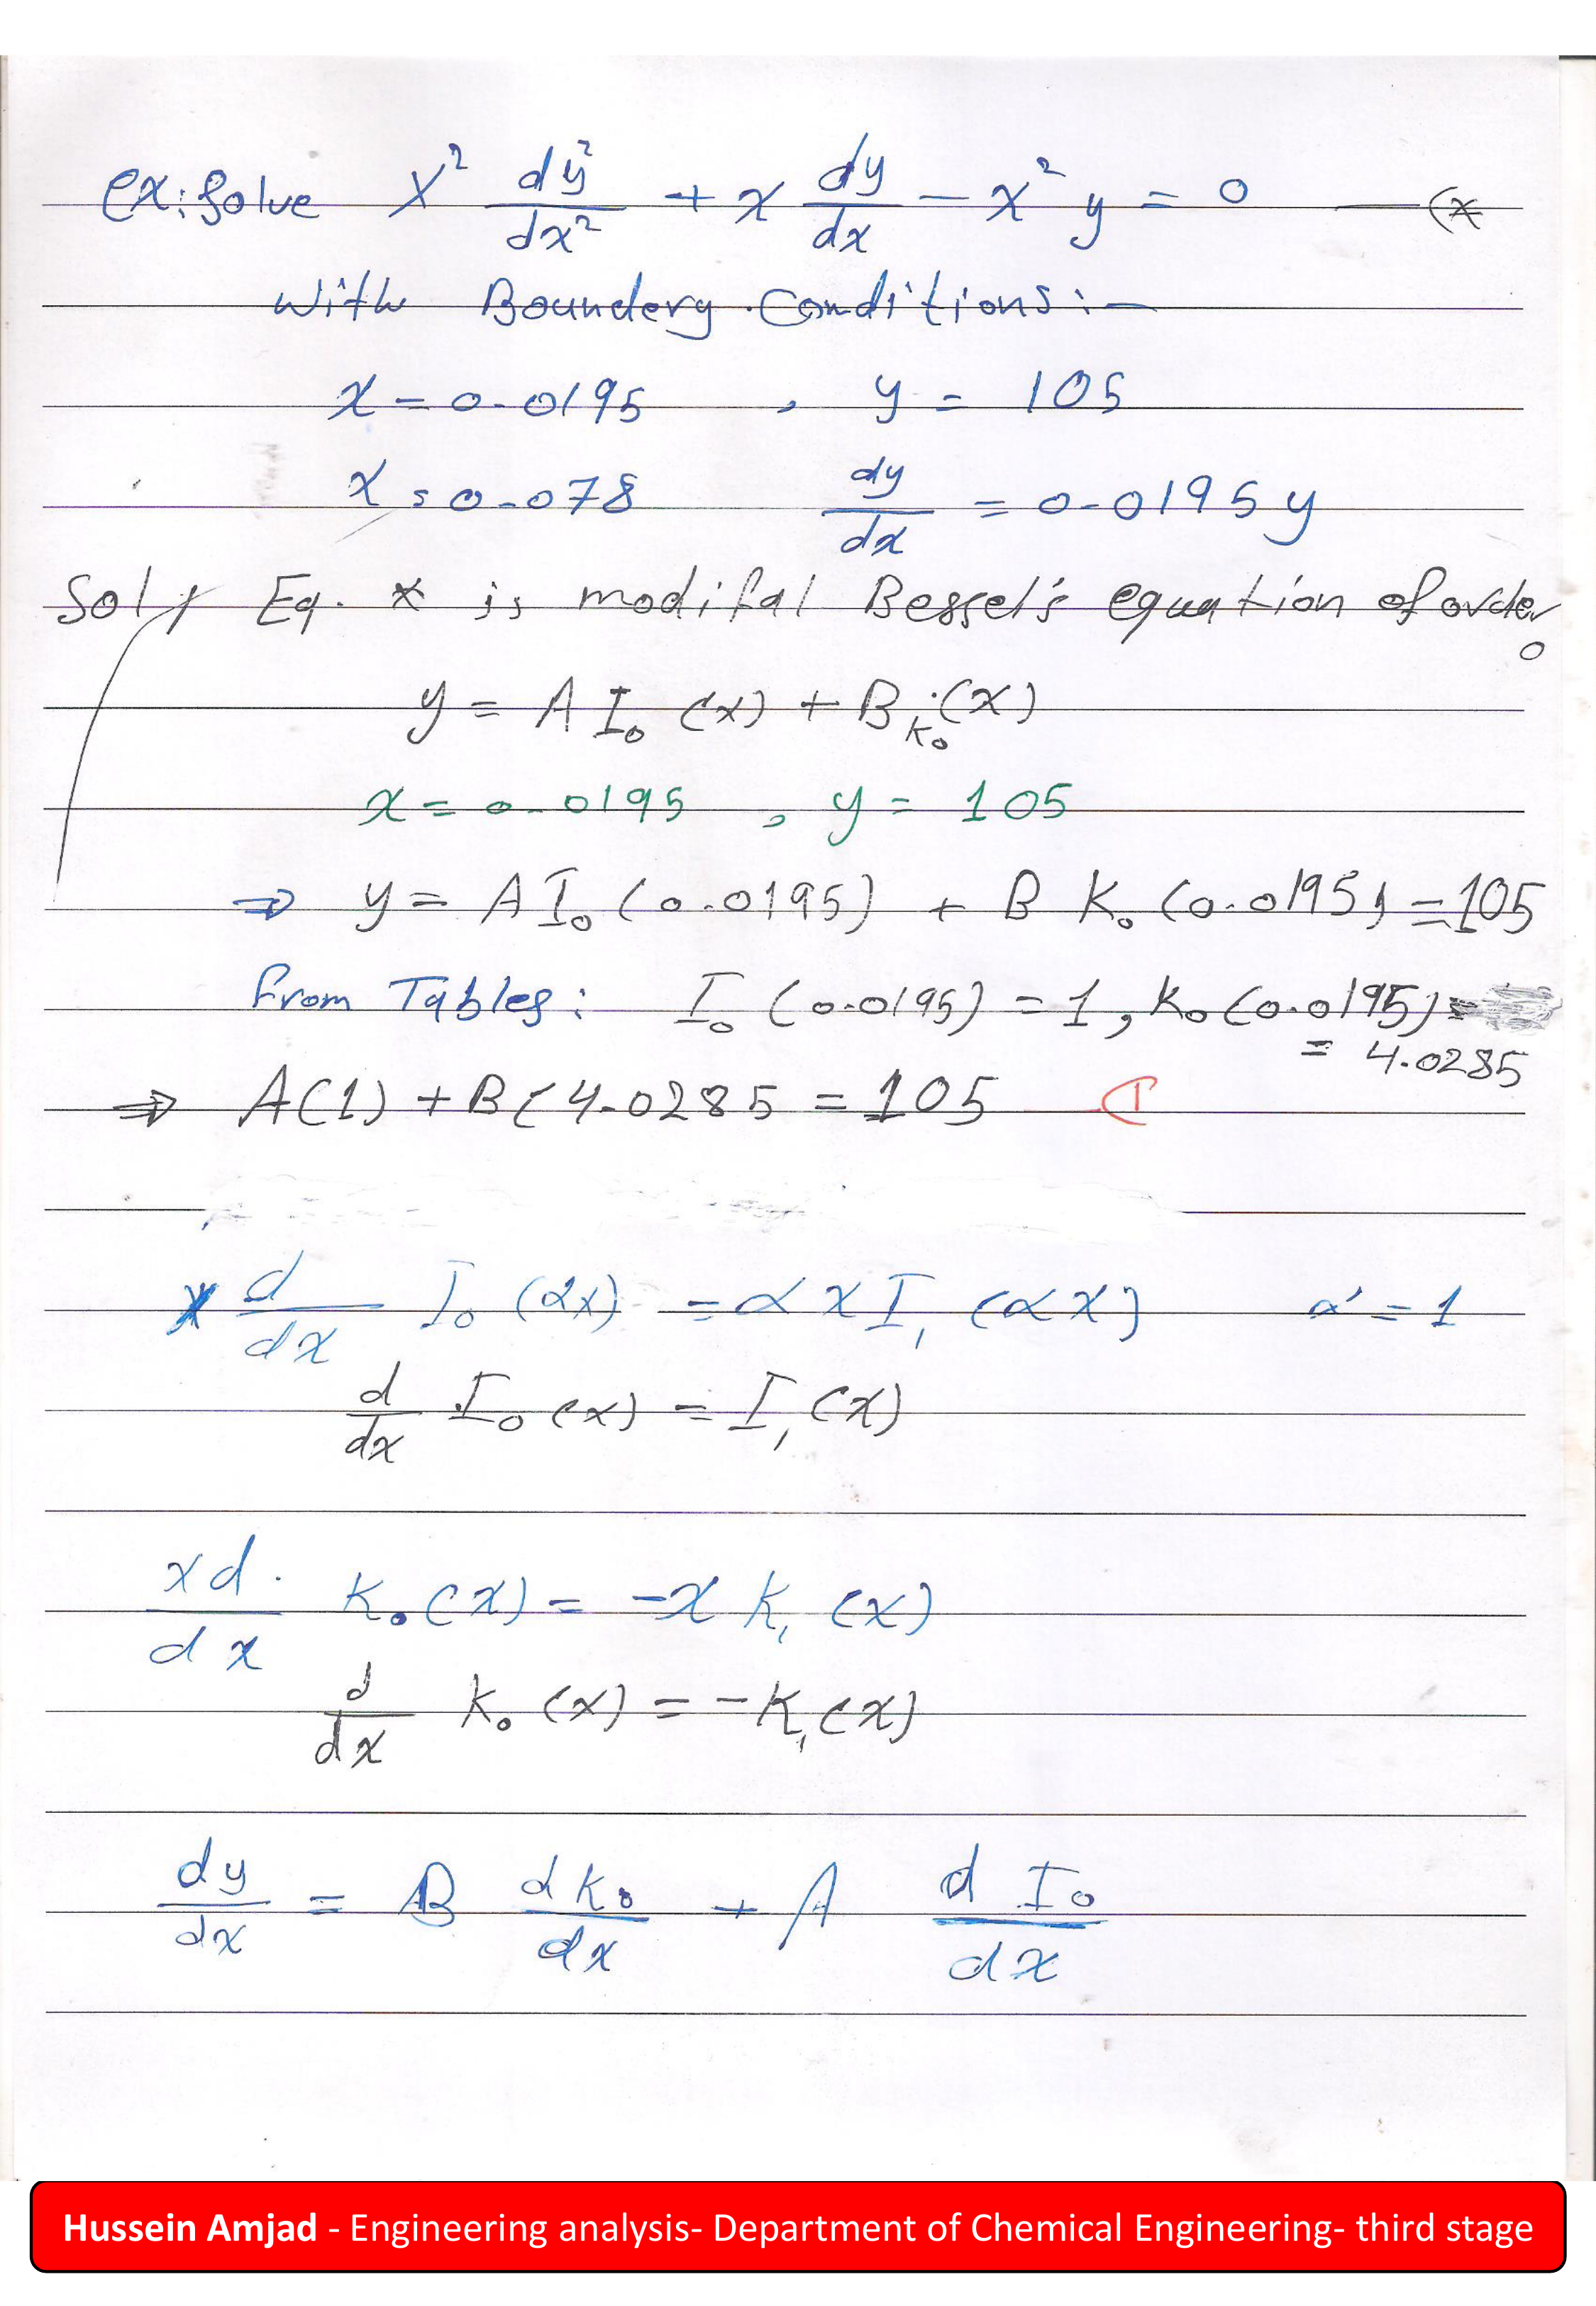 ex: Solve x² dy²/dx² + x dy/dx - x² y = 0 — (*
with Boundery Conditions :-
x = 0.0195 , y = 105
x = 0.078 dy/dx = 0.0195 y
Sol/ Eq. * is modifal Bessel's equation of order 0
y = A I₀ (x) + B K₀ (x)
x = 0.0195 , y = 105
⇒ y = A I₀ (0.0195) + B K₀ (0.0195) = 105
from Tables : I₀ (0.0195) = 1 , K₀ (0.0195) =
= 4.0285
⇒ A(1) + B(4.0285 = 105 ①
x d/dx I₀ (αx) = α x I₁ (αx) α = 1
d/dx I₀ (x) = I₁ (x)
xd/dx K₀ (x) = -x K₁ (x)
d/dx K₀ (x) = -K₁ (x)
dy/dx = B dK₀/dx + A dI₀/dx
Hussein Amjad - Engineering analysis- Department of Chemical Engineering- third stage